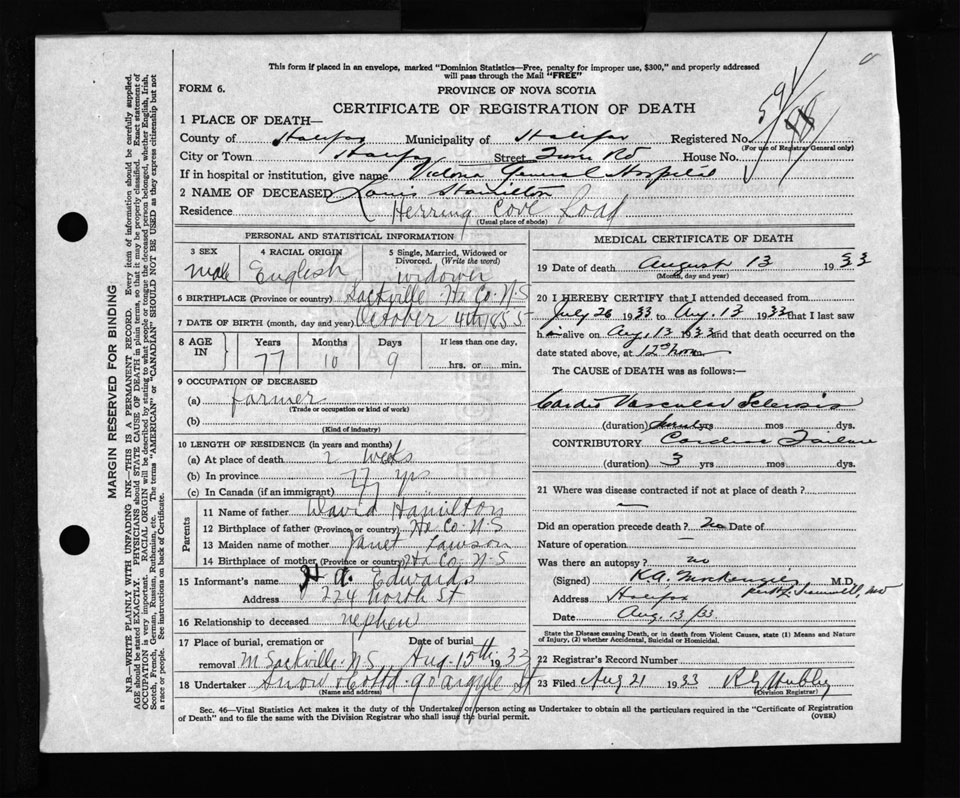 This form if placed in an envelope, marked "Dominion Statistics—Free, penalty for improper use, $300," and properly addressed
will pass through the Mail "FREE"
FORM 6.
PROVINCE OF NOVA SCOTIA
CERTIFICATE OF REGISTRATION OF DEATH
1 PLACE OF DEATH—
County of Halifax Municipality of Halifax Registered No.
(For use of Registrar General only)
City or Town Halifax Street Tower Rd House No.
If in hospital or institution, give name Victoria General Hospital
2 NAME OF DECEASED Louis Hamilton
Residence Herring Cove Road
(Usual place of abode)
PERSONAL AND STATISTICAL INFORMATION
3 SEX male
4 RACIAL ORIGIN English
5 Single, Married, Widowed or Divorced. (Write the word) widower
6 BIRTHPLACE (Province or country) Sackville Hx Co. N.S
7 DATE OF BIRTH (month, day and year) October 4th 1855
8 AGE IN Years 77 Months 10 Days 9 If less than one day, hrs. or min.
9 OCCUPATION OF DECEASED
(a) farmer
(Trade or occupation or kind of work)
(b)
(Kind of industry)
10 LENGTH OF RESIDENCE (in years and months)
(a) At place of death 2 weeks
(b) In province 77 yrs
(c) In Canada (if an immigrant)
Parents
11 Name of father David Hamilton
12 Birthplace of father (Province or country) Hx Co. N-S
13 Maiden name of mother Janet Lawson
14 Birthplace of mother (Province or country) Hx Co. N-S
15 Informant's name H A. Edwards
Address 224 North St
16 Relationship to deceased nephew
17 Place of burial, cremation or removal M Sackville. N.S. Date of burial Aug. 15th 1933
18 Undertaker Snow & Co Ltd. 90 Argyle St
(Name and address)
MEDICAL CERTIFICATE OF DEATH
19 Date of death August 13 1933
(Month, day and year)
20 I HEREBY CERTIFY that I attended deceased from
July 26 1933 to Aug. 13 1933 that I last saw
h alive on Aug. 13 1933 and that death occurred on
date stated above, at 12
The CAUSE of DEATH was as follows:
Cardio Vascular Sclerosis
(duration) yrs mos dys.
CONTRIBUTORY Cardiac Failure
(duration) 3 yrs mos dys.
21 Where was disease contracted if not at place of death?
Did an operation precede death? no Date of
Nature of operation —
Was there an autopsy? no
(Signed) K.A. MacKenzie M.D.
Address Halifax
Date Aug. 13/33.
State the Disease causing Death, or in death from Violent Causes, state (1) Means and Nature
of Injury, (2) whether Accidental, Suicidal or Homicidal.
22 Registrar's Record Number
23 Filed Aug 21 1933
(Division Registrar)
Sec. 46—Vital Statistics Act makes it the duty of the Undertaker or person acting as Undertaker to obtain all the particulars required in the "Certificate of Registration
of Death" and to file the same with the Division Registrar who shall issue the burial permit.
(OVER)
MARGIN RESERVED FOR BINDING
N.B.—WRITE PLAINLY WITH UNFADING INK—THIS IS A PERMANENT RECORD. Every item of information should be carefully supplied.
AGE should be stated EXACTLY. PHYSICIANS should STATE CAUSE OF DEATH in plain terms, so that it may be properly classified. Exact statement of
OCCUPATION is very important. RACIAL ORIGIN will be described by stating to what people or tongue the deceased person belonged, whether English, Irish,
Scotch, French, German, Russian, Ruthenian, etc. The terms "AMERICAN" or "CANADIAN" SHOULD NOT BE USED as they express citizenship but not
a race or people. See instructions on back of Certificate.